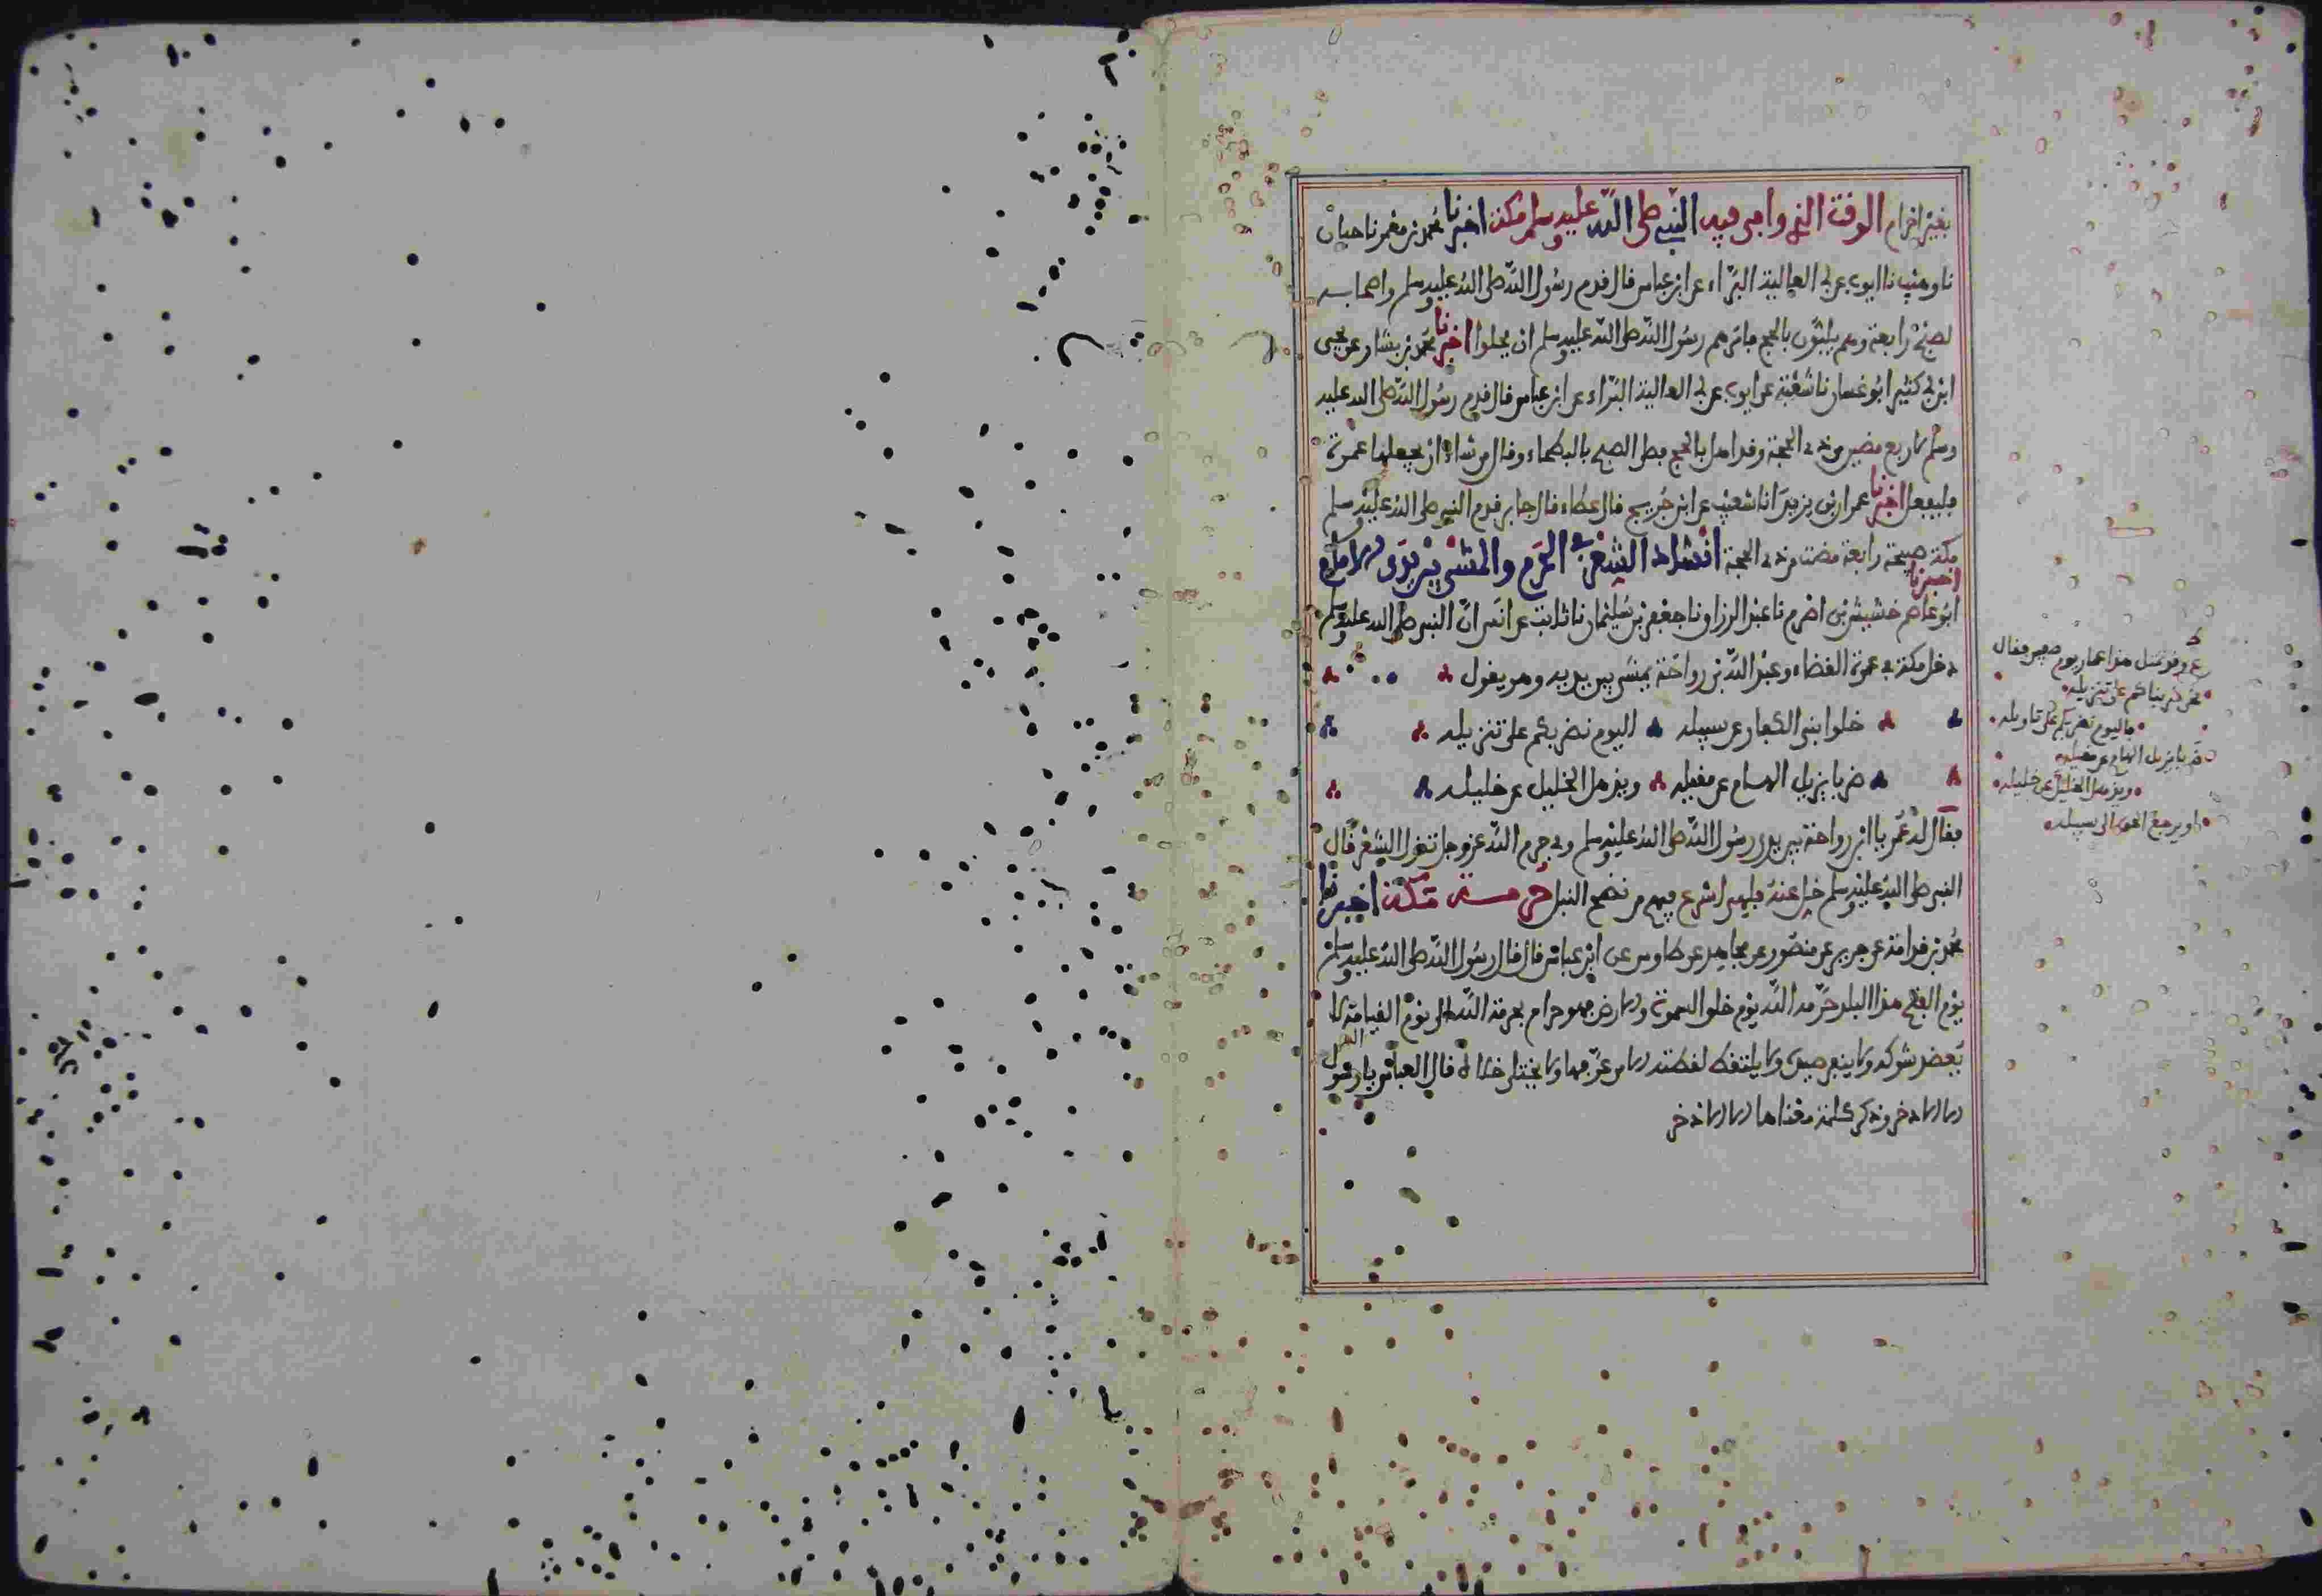 بغير احرام الوقت الذي وافى فيه النبي صلى الله عليه وسلم مكة اخبرنا محمد بن معمر نا حبان
نا وهيب نا ايوب عن ابي العالية البراء عن ابن عباس قال قدم رسول الله صلى الله عليه وسلم واصحابه
لصبح رابعة وهم يلبون بالحج فامرهم رسول الله صلى الله عليه وسلم ان يحلوا اخبرنا محمد بن بشار عن يحيى
ابن ابي كثير ابو غسان نا شعبة عن ايوب عن ابي العالية البراء عن ابن عباس قال قدم رسول الله صلى الله عليه
وسلم لاربع مضين من ذي الحجة وقد اهل بالحج فصلى الصبح بالبطحاء وقال من شاء ان يجعلها عمرة
فليفعل اخبرنا عمران بن يزيد انا شعيب عن ابن جريج قال عطاء قال جابر قدم النبي صلى الله عليه وسلم
مكة صبيحة رابعة مضت من ذي الحجة انشاد الشعر في الحرم والمشي بين يدي الامام اخبرنا
ابو عاصم خشيش بن اصرم نا عبد الرزاق نا جعفر بن سليمان نا ثابت عن انس ان النبي صلى الله عليه وسلم
دخل مكة في عمرة القضاء وعبد الله بن رواحة يمشي بين يديه وهو يقول
خلوا بني الكفار عن سبيله اليوم نضربكم على تنزيله
ضربا يزيل الهام عن مقيله ويذهل الخليل عن خليله
فقال له عمر يا ابن رواحة بين يدي رسول الله صلى الله عليه وسلم وفي حرم الله عز وجل تقول الشعر قال
النبي صلى الله عليه وسلم خل عنه فلهي اسرع فيهم من نضح النبل حرمة مكة اخبرنا
محمد بن قدامة عن جرير عن منصور عن مجاهد عن طاوس عن ابن عباس قال قال رسول الله صلى الله عليه وسلم
يوم الفتح هذا البلد حرمه الله يوم خلق السموت والارض فهو حرام بحرمة الله الى يوم القيامة لا
يعضد شوكه ولا ينفر صيده ولا يلتقط لقطته الا من عرفها ولا يختلى خلاه قال العباس يا رسول الله
الا الاذخر وذكر كلمة معناها الا الاذخر
وقد تمثل هذا عمار يوم صفين فقال
نحن ضربناكم على تنزيله
فاليوم نضربكم على تاويله
ضربا يزيل الهام عن مقيله
ويذهل الخليل عن خليله
او يرجع الحق الى سبيله